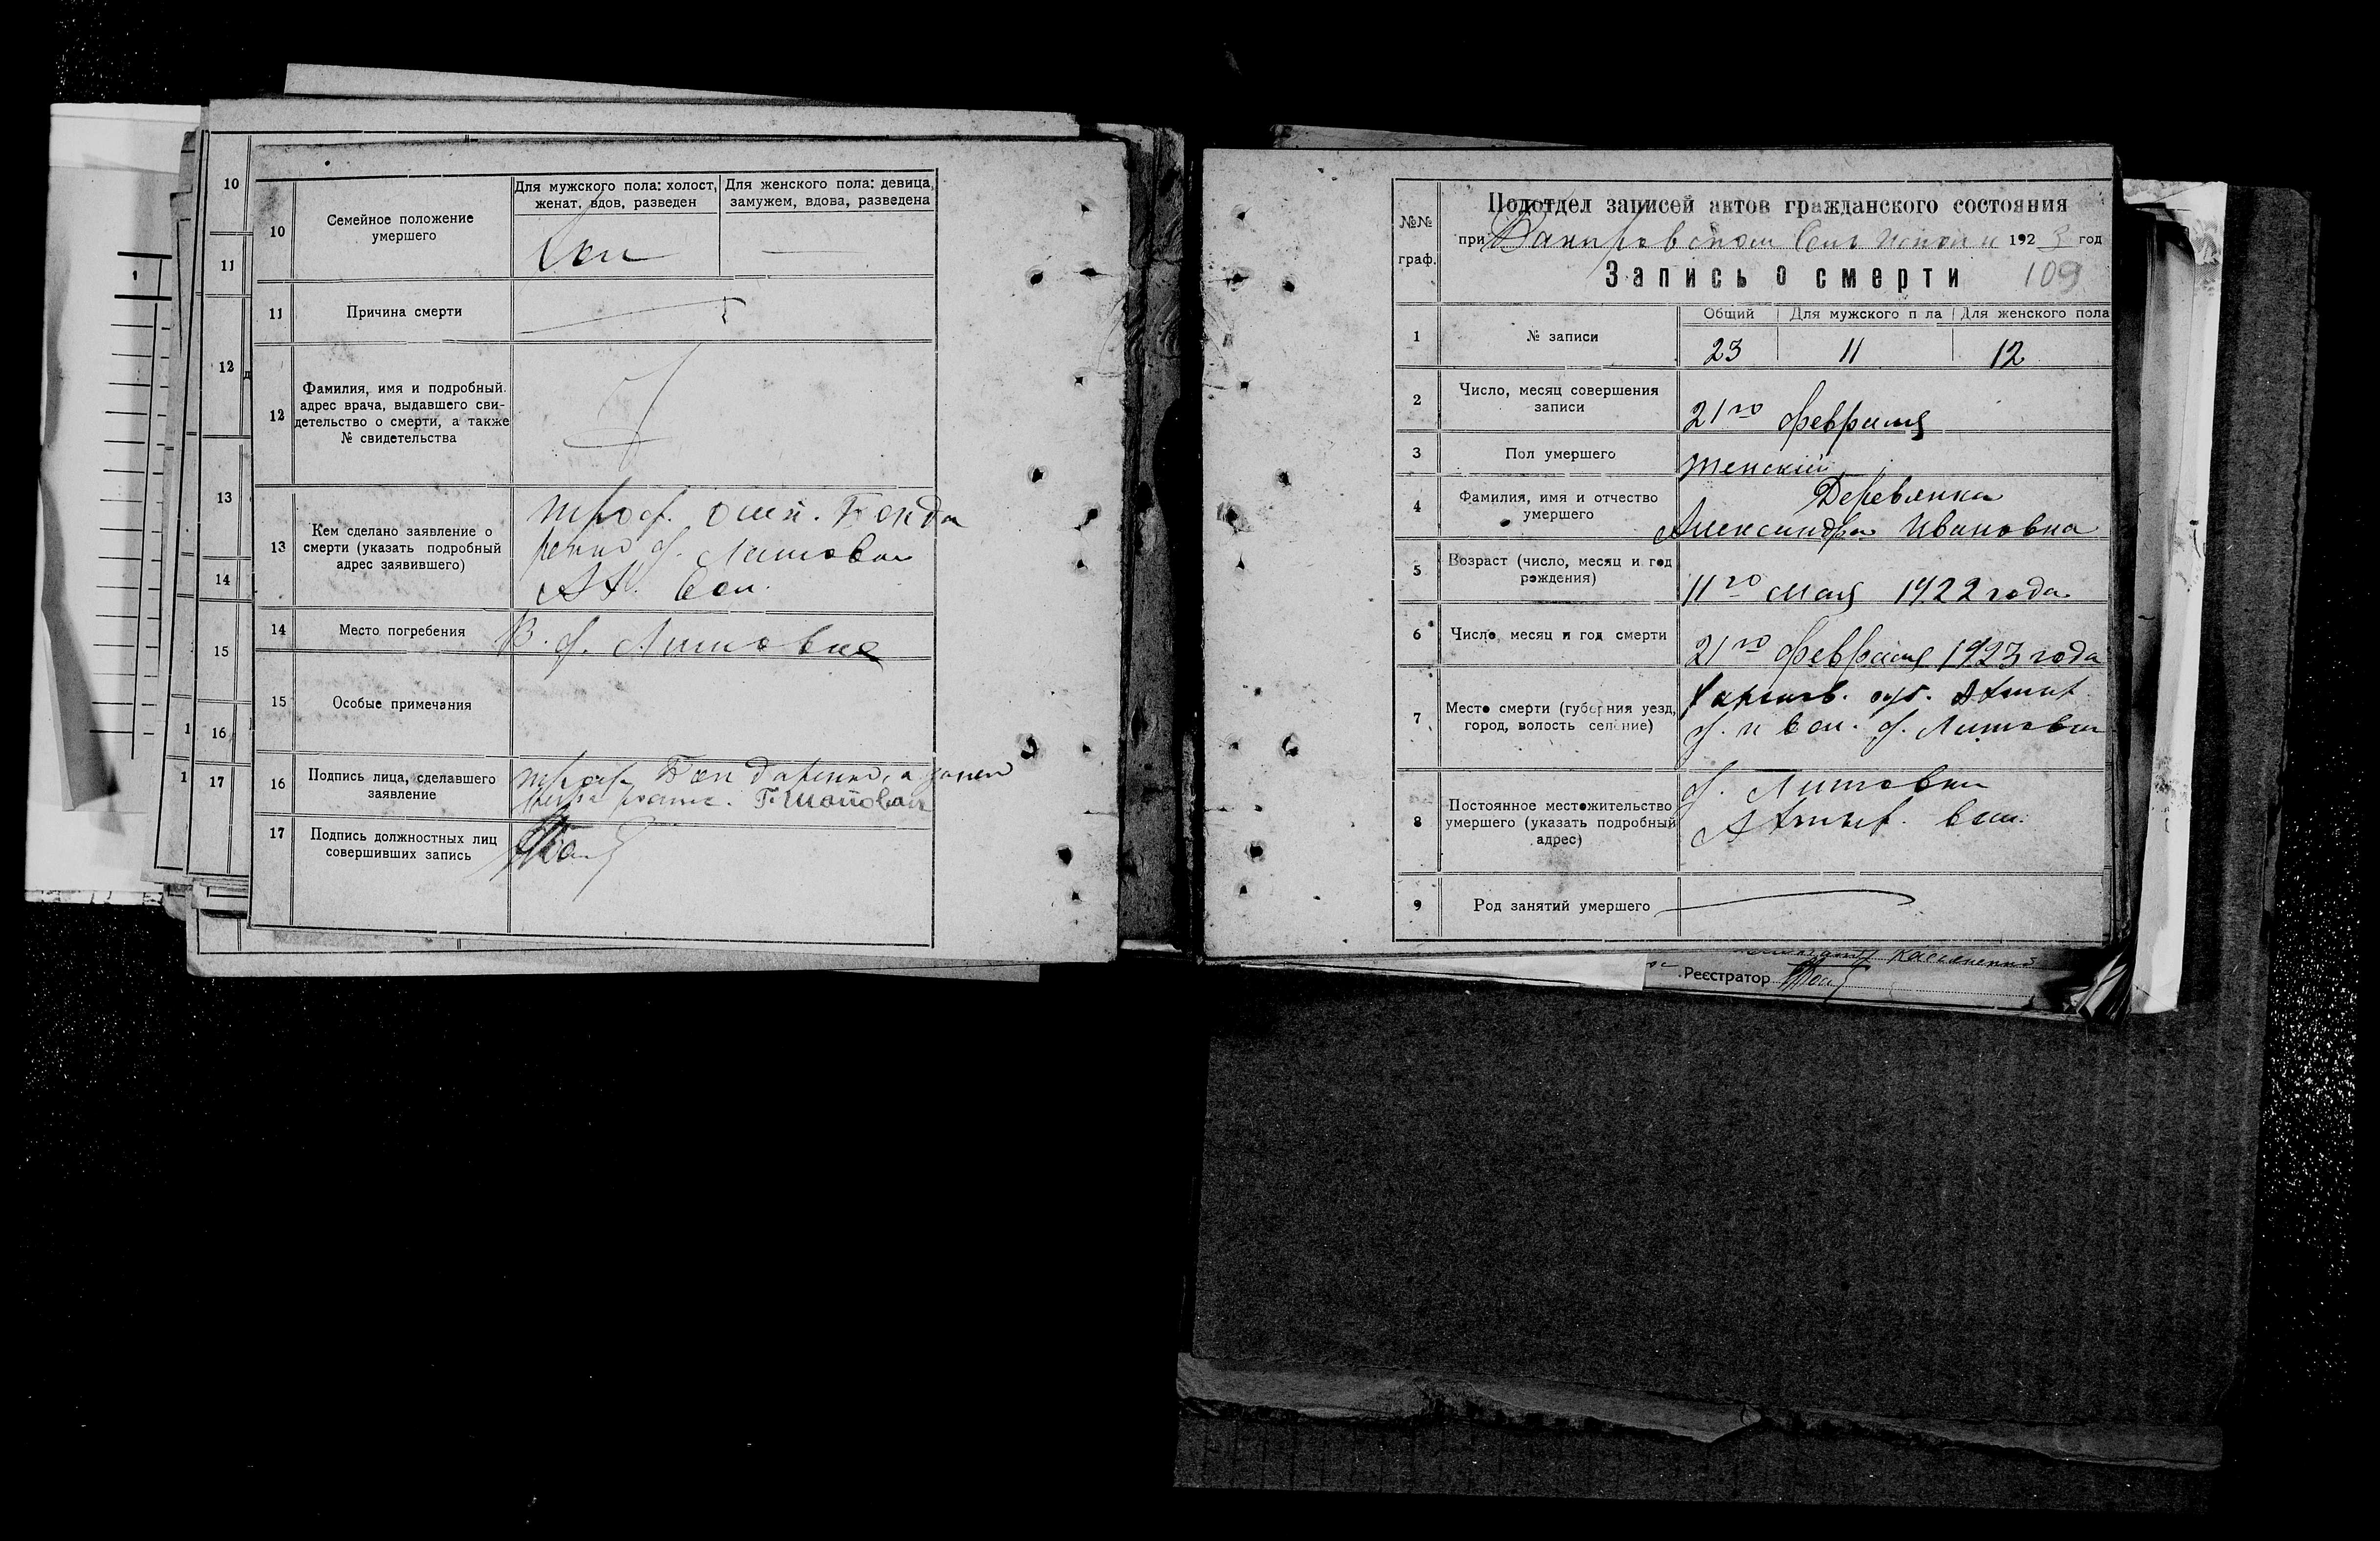 10
11
12
13
14
15
16
17
10
Семейное положение
умершего
Для мужского пола: холост,
женат, вдов, разведен
Для женского пола: девица,
замужем, вдова, разведена
11
Причина смерти
12
Фамилия, имя и подробный
адрес врача, выдавшего сви-
детельство о смерти, а также
№ свидетельства
13
Кем сделано заявление о
смерти (указать подробный
адрес заявившего)
Бонда
ренко
вол.
14
Место погребения
В. Литовка
15
Особые примечания
16
Подпись лица, сделавшего
заявление
Бондаренко, а
17
Подпись должностных лиц
совершивших запись
№№
граф.
Подотдел записей актов гражданского состояния
при 192 3 год
Запись о смерти 109
1
№ записи
Общий
Для мужского п ла
Для женского пола
23
11
12
2
Число, месяц совершения
записи
21го февраля
3
Пол умершего
Женскій
4
Фамилия, имя и отчество
умершего
Деревянка
Александра Ивановна
5
Возраст (число, месяц и год
рождения)
11го мая 1922 года
6
Число, месяц и год смерти
21го февраля 1923 года
7
Место смерти (губерния уезд,
город, волость селение)
Харьков. губ. Ахтыр.
у. и вол. Литовка
8
Постоянное местожительство
умершего (указать подробный
адрес)
Литовка
Ахтыр. вол.
9
Род занятий умершего
Реєстратор